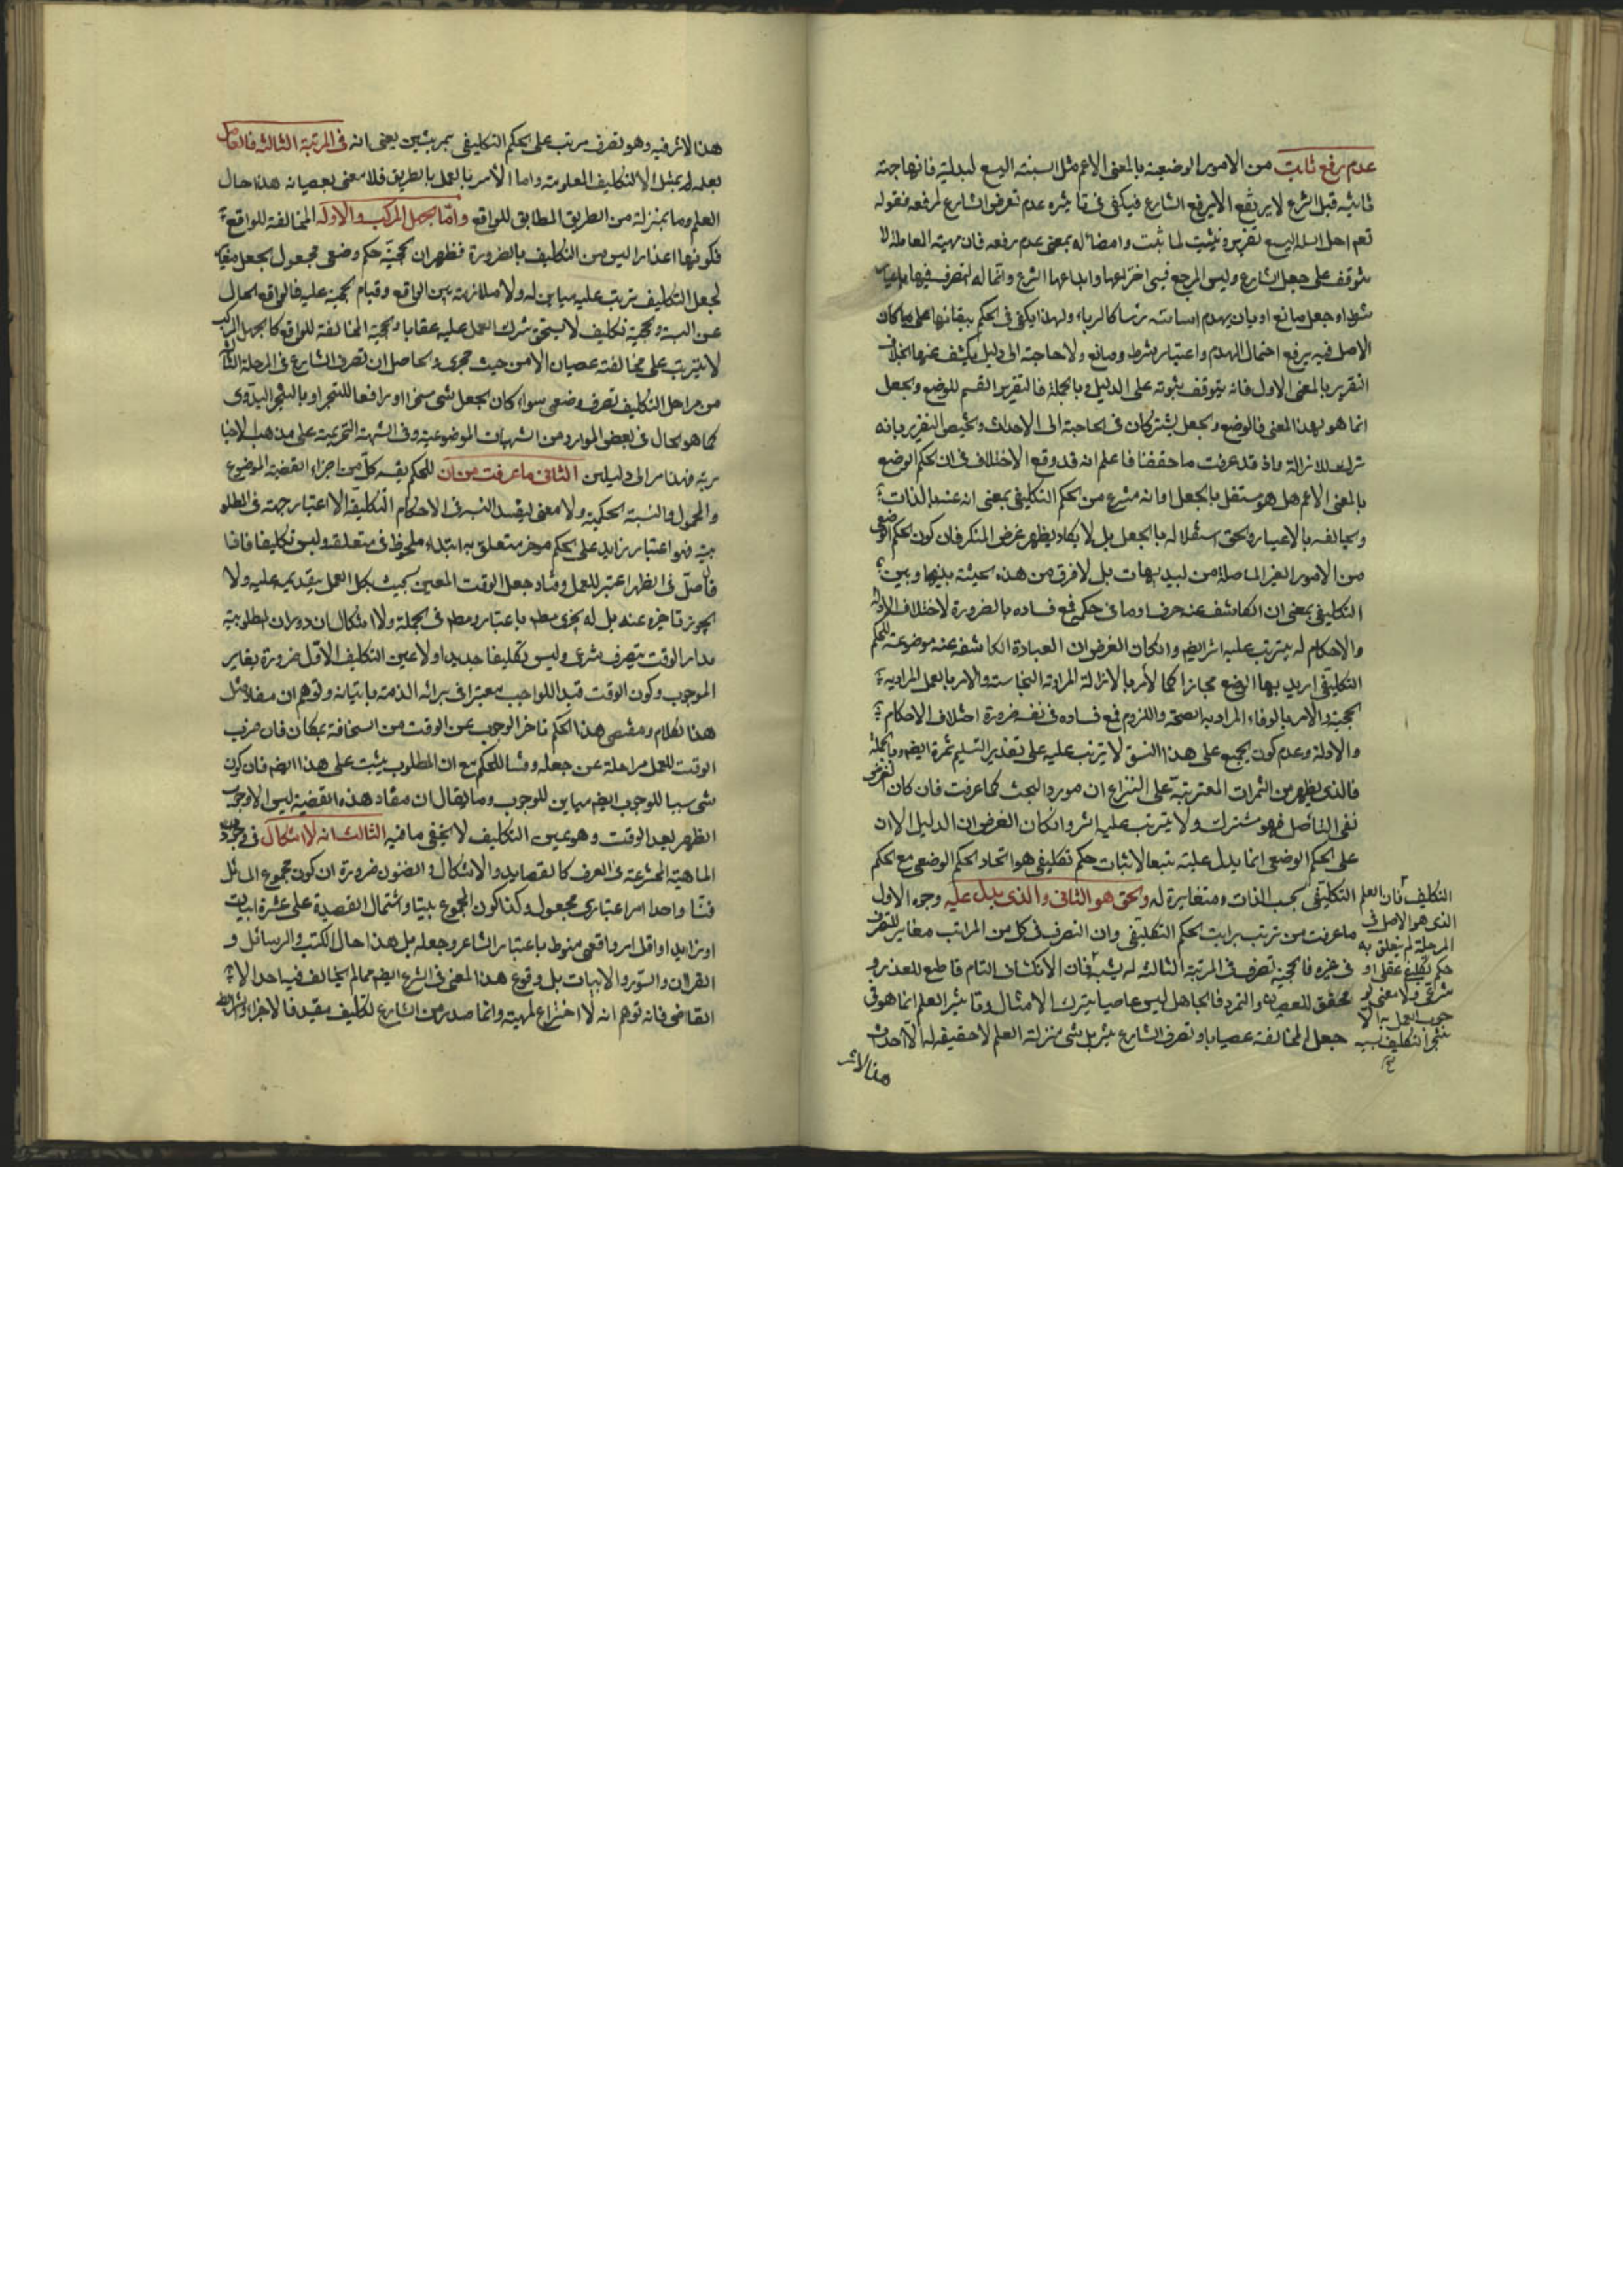 عدم رفع ثابت من الامور الوضعية بالمعنى الاعم مثل سببية البيع لبدلية فانها جهة
ثابتة قبل الشرع لا يرتفع الا برفع الشارع فيكفى فى تاثيره عدم تعرض الشارع لرفعه فقوله
تعم احل الله البيع تقرير وتثبيت لما ثبت وامضائه بمعنى عدم رفعه فان مهية المعاملة لا
يتوقف على جعل الشارع وليس المرجع فيه اختراعها وابداعها الشرع وانما له التصرف فيها
شرط او جعل مانع او بان يهدم اساسه راسا كالرباء ولهذا يكفى فى الحكم ببقائها على ما كان
الاصل فيه يرفع احتمال الهدم واعتبار شرط ومانع ولا حاجة الى دليل يكشف عنها بخلاف
التقرير بالمعنى الاول فانه يتوقف ثبوته على الدليل وبالجملة فالتقرير القسيم للوضع والجعل
انما هو بهذا المعنى فالوضع والجعل يشتركان فى الحاجة الى الاحداث ويختص التقرير بانه
ترك للازالة واذ قد عرفت ما حققنا فاعلم انه قد وقع الاختلاف فى ان الحكم الوضع
بالمعنى الاعم هل هو مستقل بالجعل او انه منتزع من الحكم التكليفى بمعنى انه عينه بالذات
ويخالفه بالاعتبار والحق استقلاله بالجعل بل لا يكاد يظهر غرض المنكر فان كون الحكم الوضعى
من الامور الغير المتاصلة من البديهيات بل لا فرق من هذه الحيثية بينها وبين
التكليفى بمعنى ان الكاشف عنه حرفا وما فى حكمه فمع فساده بالضرورة لاختلاف الادلة
والاحكام له يترتب عليه اثر ايضم وان كان الغرض ان العبادة الكاشفة عنه موضوعة للحكم
التكليفى اريد بها الوضع مجازا كما لامر بالازالة المراد به النجاسة والامر بالعمل المراد به
الحجية والامر بالوفاء المراد به الصحة واللزوم فمع فساده فى نفسه ضرورة اختلاف الاحكام
والادلة وعدم كون الجميع على هذا النسق لا يترتب عليه على تقدير التسليم ثمرة ايضم وبالجملة
فالذى يظهر من الثمرات المعتبرتبة على النزاع ان مورد البحث كما عرفت فان كان الغرض
نفى التاصل فهو مشترك ولا يترتب عليه اثر وان كان الغرض ان الدليل الا ان
على الحكم الوضعى انما يدل عليه بتبعا لاثبات حكم تكليفى هو اتحاد الحكم الوضعى مع الحكم
التكليفى بحسب الذات ومتغايرة له والحق هو الثانى والذى يدل عليه وجوه الاول
ما عرفت من ترتب مراتب الحكم التكليفى وان التصرف فى كل من المراتب مغاير للتصرف
فى غيره فالحجية تصرف فى المرتبة الثالثة له فان الانكشاف التام قاطع للعذر و
محقق للعصيان والتمرد فالجاهل ليس عاصيا بترك الامتثال وتاثير العلم انما هو فى
جعل المخالفة عصيانا وتصرف الشارع بتنزيل شئ منزلة العلم لا حقيقة له الا احداث
هذا الاثر
التكليف فان العلم
الذى هو الاصل فى
المرحلة لم يتعلق به
حكم تكليفى عقلى او
شرعى ولا معنى لو
جوب العمل به الا
تنجز التكليف بسببه
هذا الاثر فيه وهو تصرف مرتب على الحكم التكليفى بمرتبتين يعنى انه فى المرتبة الثالثة فالعامل
بعلمه لم يمتثل الا التكليف المعلوم به واما الامر بالعمل بالطريق فلا معنى لعصيانه هذا حال
العلم وما بمنزلة من الطريق المطابق للواقع واما الجهل المركب والادلة المخالفة للواقع
فكونها اعذارا ليس من التكليف بالضرورة فظهر ان الحجية حكم وضعى مجعول بجعل مغاير
لجعل التكليف يترتب عليه مباين له ولا ملازمة بين الواقع وقيام الحجية عليه فالواقع الخال
عن البينة والحجية تكليف لا يستحق بترك العمل عليه عقابا والحجية المخالفة للواقع كالجهل المركب
لا يترتب على مخالفته عصيان الا من حيث تجرى والحاصل ان تصرف الشارع فى المرحلة الثالثة
من مراحل التكليف تصرف وضعى سواء كان بجعل شئ منجزا او رافعا للتنجز او بالتنجز البدوى
كما هو الحال فى بعض الموارد من الشبهات الموضوعية وفى الشبهة التحريمية على مذهب الاخبا
رية فهذا مرالى دليلين الثانى ما عرفت من ان للحكم بقسميه كل من اجزاء القضية الموضوع
والمحمول والنسبة الحكمية ولا معنى لتقييد النسبة فى الاحكام التكليفية الا اعتبار جهة فى المطلو
بية فهو اعتبار زايد على الحكم موخر متعلق به ابتداء ملحوظ فى متعلقه وليس تكليفا فاذا
قال صل فى الظهر اعتبر للعمل ومفاد جعل الوقت المعين بحيث بكل العمل بتقديمه عليه ولا
يجوز تاخيره عنه بل له يجزى مطم باعتباره مطم فى الجملة ولا اشكال ان دوران المطلوبية
مدار الوقت تصرف شرعى وليس تكليفا جديدا ولا عين التكليف الاول ضرورة تغاير
الوجوب وكون الوقت قيدا للواجب معتبرا فى برائة الذمة باتيانه وتوهم ان مفاد مثل
هذا الكلام ومقتضى هذا الحكم تاخر الوجوب عن الوقت من السخافة بمكان فان ضرب
الوقت للعمل مرحلة عن جعله ومنشا للحكم مع ان المطلوب يثبت على هذا ايضم فان كون
شئ سببا للوجوب ايضم مباين للوجوب وما يقال ان مفاد هذه القضية ليس الا وجوب
الظهر بعد الوقت وهو عين التكليف لا يخفى ما فيه الثالث انه لا اشكال فى وجود
الماهية المخترعة فى العرف كالقصايد والاشكال والفنون ضرورة ان كون مجموع المسائل
فنا واحدا امر اعتبارى مجعول وكذا كون المجموع بيتا واشتمال القصيدة على عشرة ابيات
او ازايد او اقل امر واقعى منوط باعتبار الشاعر وجعله بل هذا حال الكتب والرسائل و
القران والسور والايات بل وقوع هذا المعنى فى الشرع ايضم مما لم يخالف فيه احد الا
القاضى فانه توهم انه لا اختراع لمهية وانما صدر من الشارع تكليف مقيد فالاجزاء والشرائط